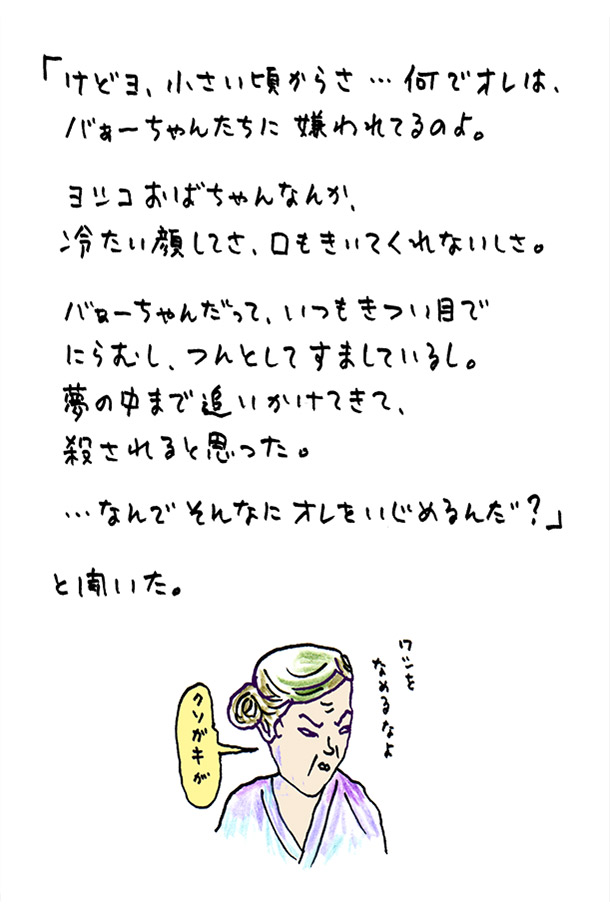 「けどヨ、小さい頃からさ…何でオレは、
バぁーちゃんたちに嫌われてるのよ。
ヨシコおばちゃんなんか、
冷たい顔してさ、口もきいてくれないしさ。
バぁーちゃんだって、いつもきつい目で
にらむし、つんとしてすましているし。
夢の中まで追いかけてきて、
殺されると思った。
…なんでそんなにオレをいじめるんだ?」
と聞いた。
ワシを
なめるなよ
クソガキが